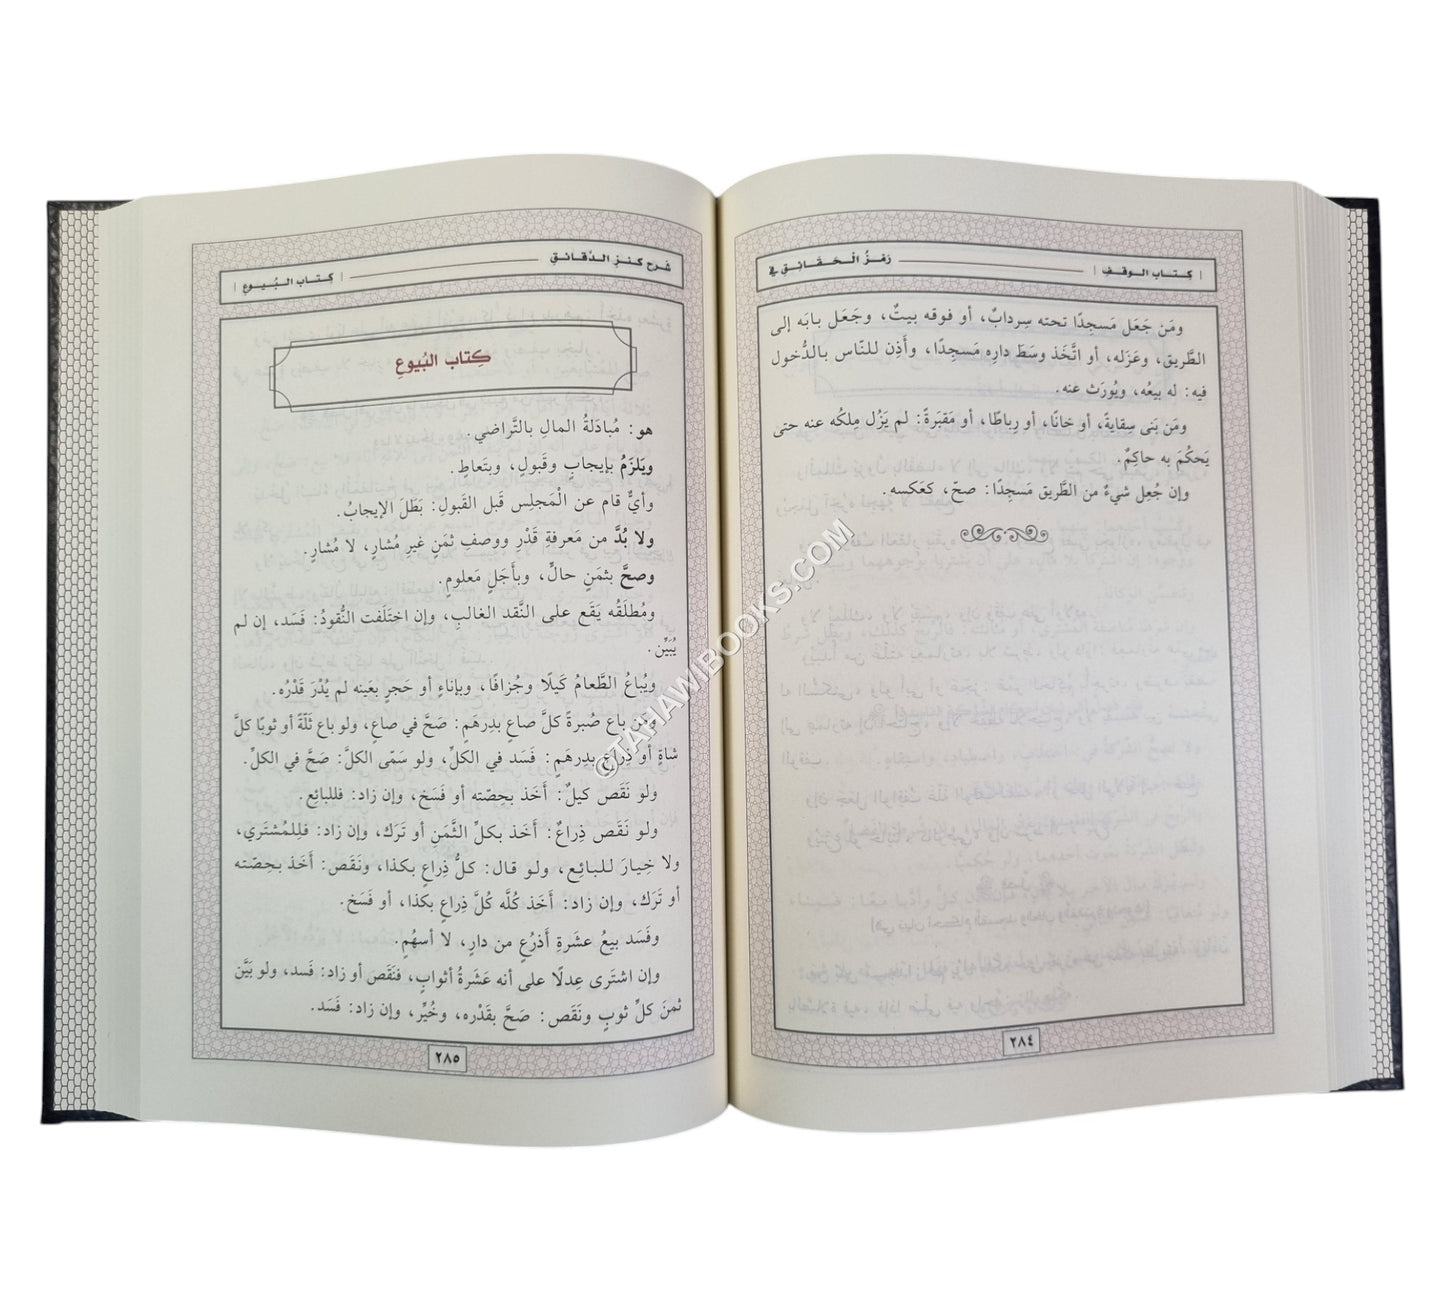 | كتاب الوقف | رَمْزُ الْحَقَائِقِ في
ومَن جَعَل مَسجدًا تحته سِردابٌ، أو فوقه بيتٌ، وجَعَل بابَه إلى
الطَّريق، وعَزَله، أو اتَّخَذ وسَطَ دارِه مَسجِدًا، وأَذِن للنّاس بالدُّخول
فيه: له بيعُه، ويُورَث عنه.
ومَن بَنى سِقايةً، أو خانًا، أو رِباطًا، أو مَقبَرةً: لم يَزُل مِلكُه عنه حتى
يَحكُمَ به حاكِمٌ.
وإن جُعِل شيءٌ من الطَّريق مَسجِدًا: صحّ، كعَكسه.
٢٨٤
شرح كنز الدَّقائق | كِتاب البُيوع |
كِتاب البُيوعِ
هو: مُبادَلةُ المالِ بالتَّراضي.
ويَلزَمُ بإيجابٍ وقَبولٍ، وبتَعاطٍ.
وأيٌّ قام عن الْمَجلِس قَبل القَبولِ: بَطَلَ الإيجابُ.
ولا بُدَّ من مَعرفةِ قَدْرٍ ووصفِ ثمَنٍ غيرِ مُشارٍ، لا مُشارٍ.
وصحَّ بثمَنٍ حالٍّ، وبأَجَلٍ مَعلومٍ.
ومُطلَقُه يَقَع على النَّقد الغالبِ، وإن اختَلَفت النُّقودُ: فَسَد، إن لم
يُبَيِّن.
ويُباعُ الطَّعامُ كَيلًا وجُزافًا، وبإناءٍ أو حَجرٍ بعَينه لم يُدْرَ قَدْرُه.
ومَن باع صُبرةً كلَّ صاعٍ بدِرهَمٍ: صَحَّ في صاعٍ، ولو باع ثَلّةً أو ثوبًا كلَّ
شاةٍ أو ذِراعٍ بدِرهَمٍ: فَسَد في الكلِّ، ولو سَمّى الكلَّ: صَحَّ في الكلِّ.
ولو نَقَص كيلٌ: أَخَذ بحِصّته أو فَسَخ، وإن زاد: فللبائِع.
ولو نَقَص ذِراعٌ: أَخَذ بكلِّ الثَّمَنِ أو تَرَك، وإن زاد: فلِلمُشتَري،
ولا خِيارَ للبائِع، ولو قال: كلُّ ذِراعٍ بكذا، ونَقَص: أَخَذ بحِصّته
أو تَرَك، وإن زاد: أَخَذ كُلَّه كُلَّ ذِراعٍ بكذا، أو فَسَخ.
وفَسَد بيعُ عشَرةِ أَذرُعٍ من دارٍ، لا أَسهُمٍ.
وإن اشتَرى عِدلًا على أنه عَشَرةُ أثوابٍ، فنَقَصَ أو زاد: فَسد، ولو بَيَّنَ
ثمنَ كلِّ ثوبٍ ونَقَص: صَحَّ بقَدْره، وخُيِّر، وإن زاد: فَسَد.
٢٨٥
©TAHAWIBOOKS.COM